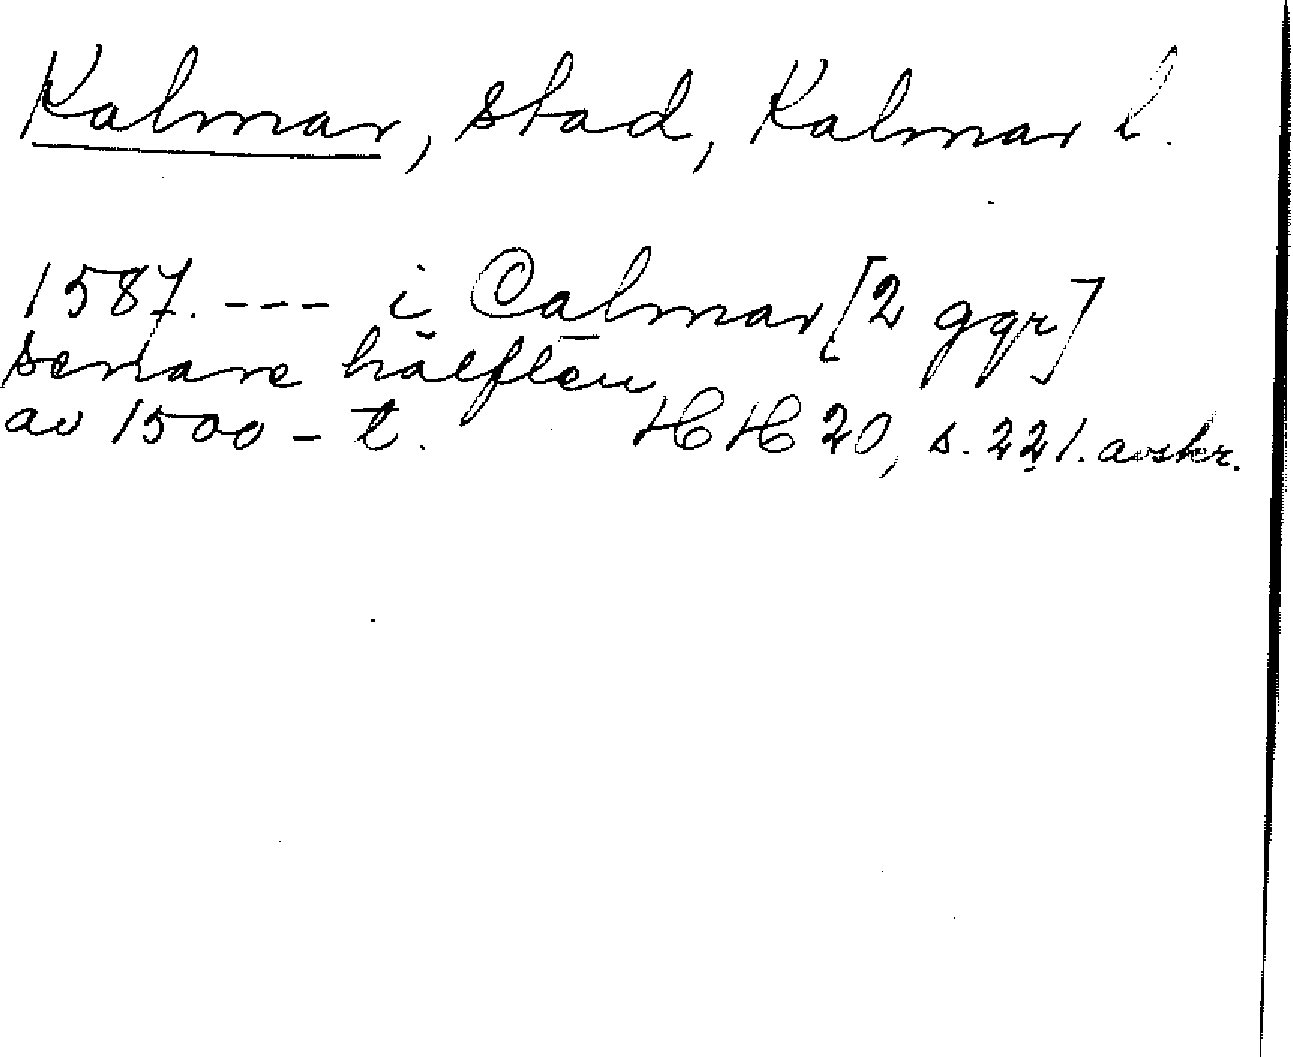 Kalmar, stad, Kalmar l.
1587. --- i Calmar [2 ggr]
senare hälften
av 1500-t. HH 20, s. 221. avskr.